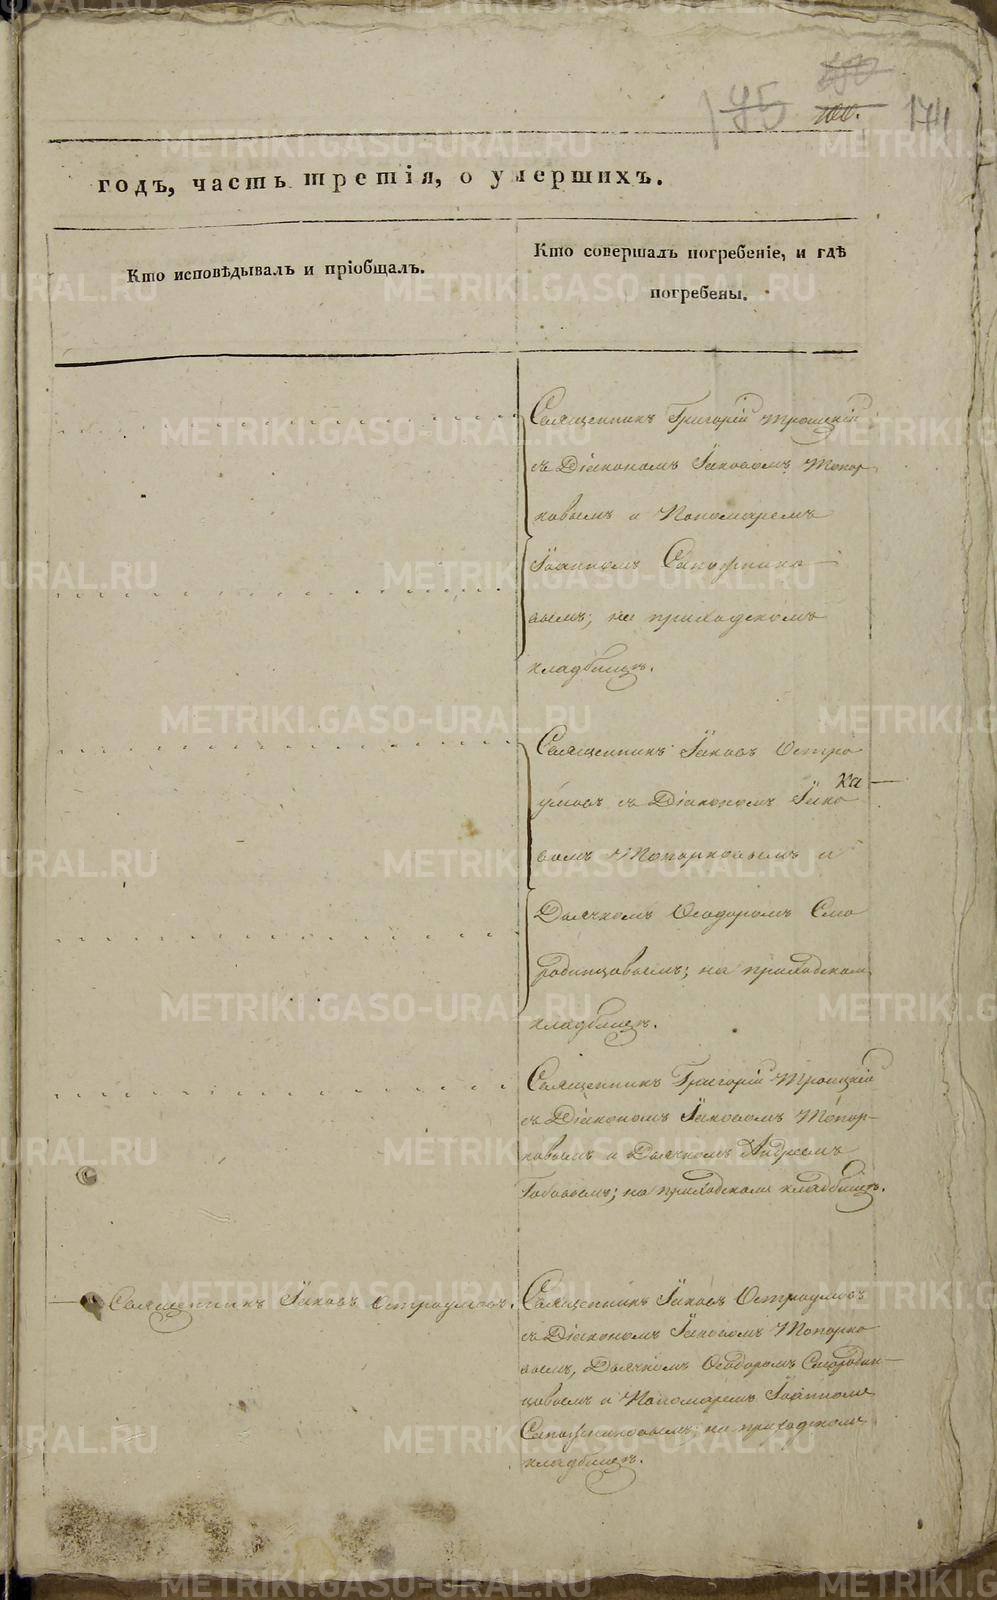 195
100.
174
годъ, часть третія, о умершихъ.
Кто исповѣдывалъ и пріобщалъ.
Кто совершалъ погребеніе, и гдѣ
погребены.
Священникъ Григорій Троицкій
съ Діакономъ Іаковомъ Топор
ковымъ и Пономаремъ
Іоанномъ Сапожнико
вымъ; на приходскомъ
кладбищѣ.
Священникъ Іаковъ Остро
умовъ съ Діакономъ Іако
вомъ Топорковымъ и
Дьячкомъ Ѳеодоромъ Смо
родинцовымъ; на приходском
кладбищѣ.
Священникъ Григорій Троицкій
съ Діакономъ Іаковомъ Топор-
ковымъ и Дьячкомъ Андреемъ
на приходскомъ кладбищѣ.
Священникъ Іаковъ Остроумовъ.
Священникъ Іаковъ Остроумовъ
съ Діакономъ Іаковомъ Топорко
вымъ, Дьячкомъ Ѳеодоромъ Смородин-
цовымъ и Пономаремъ Іоанномъ
Сапожниковымъ; на приходскомъ
кладбищѣ.
METRIKI.GASO-URAL.RU